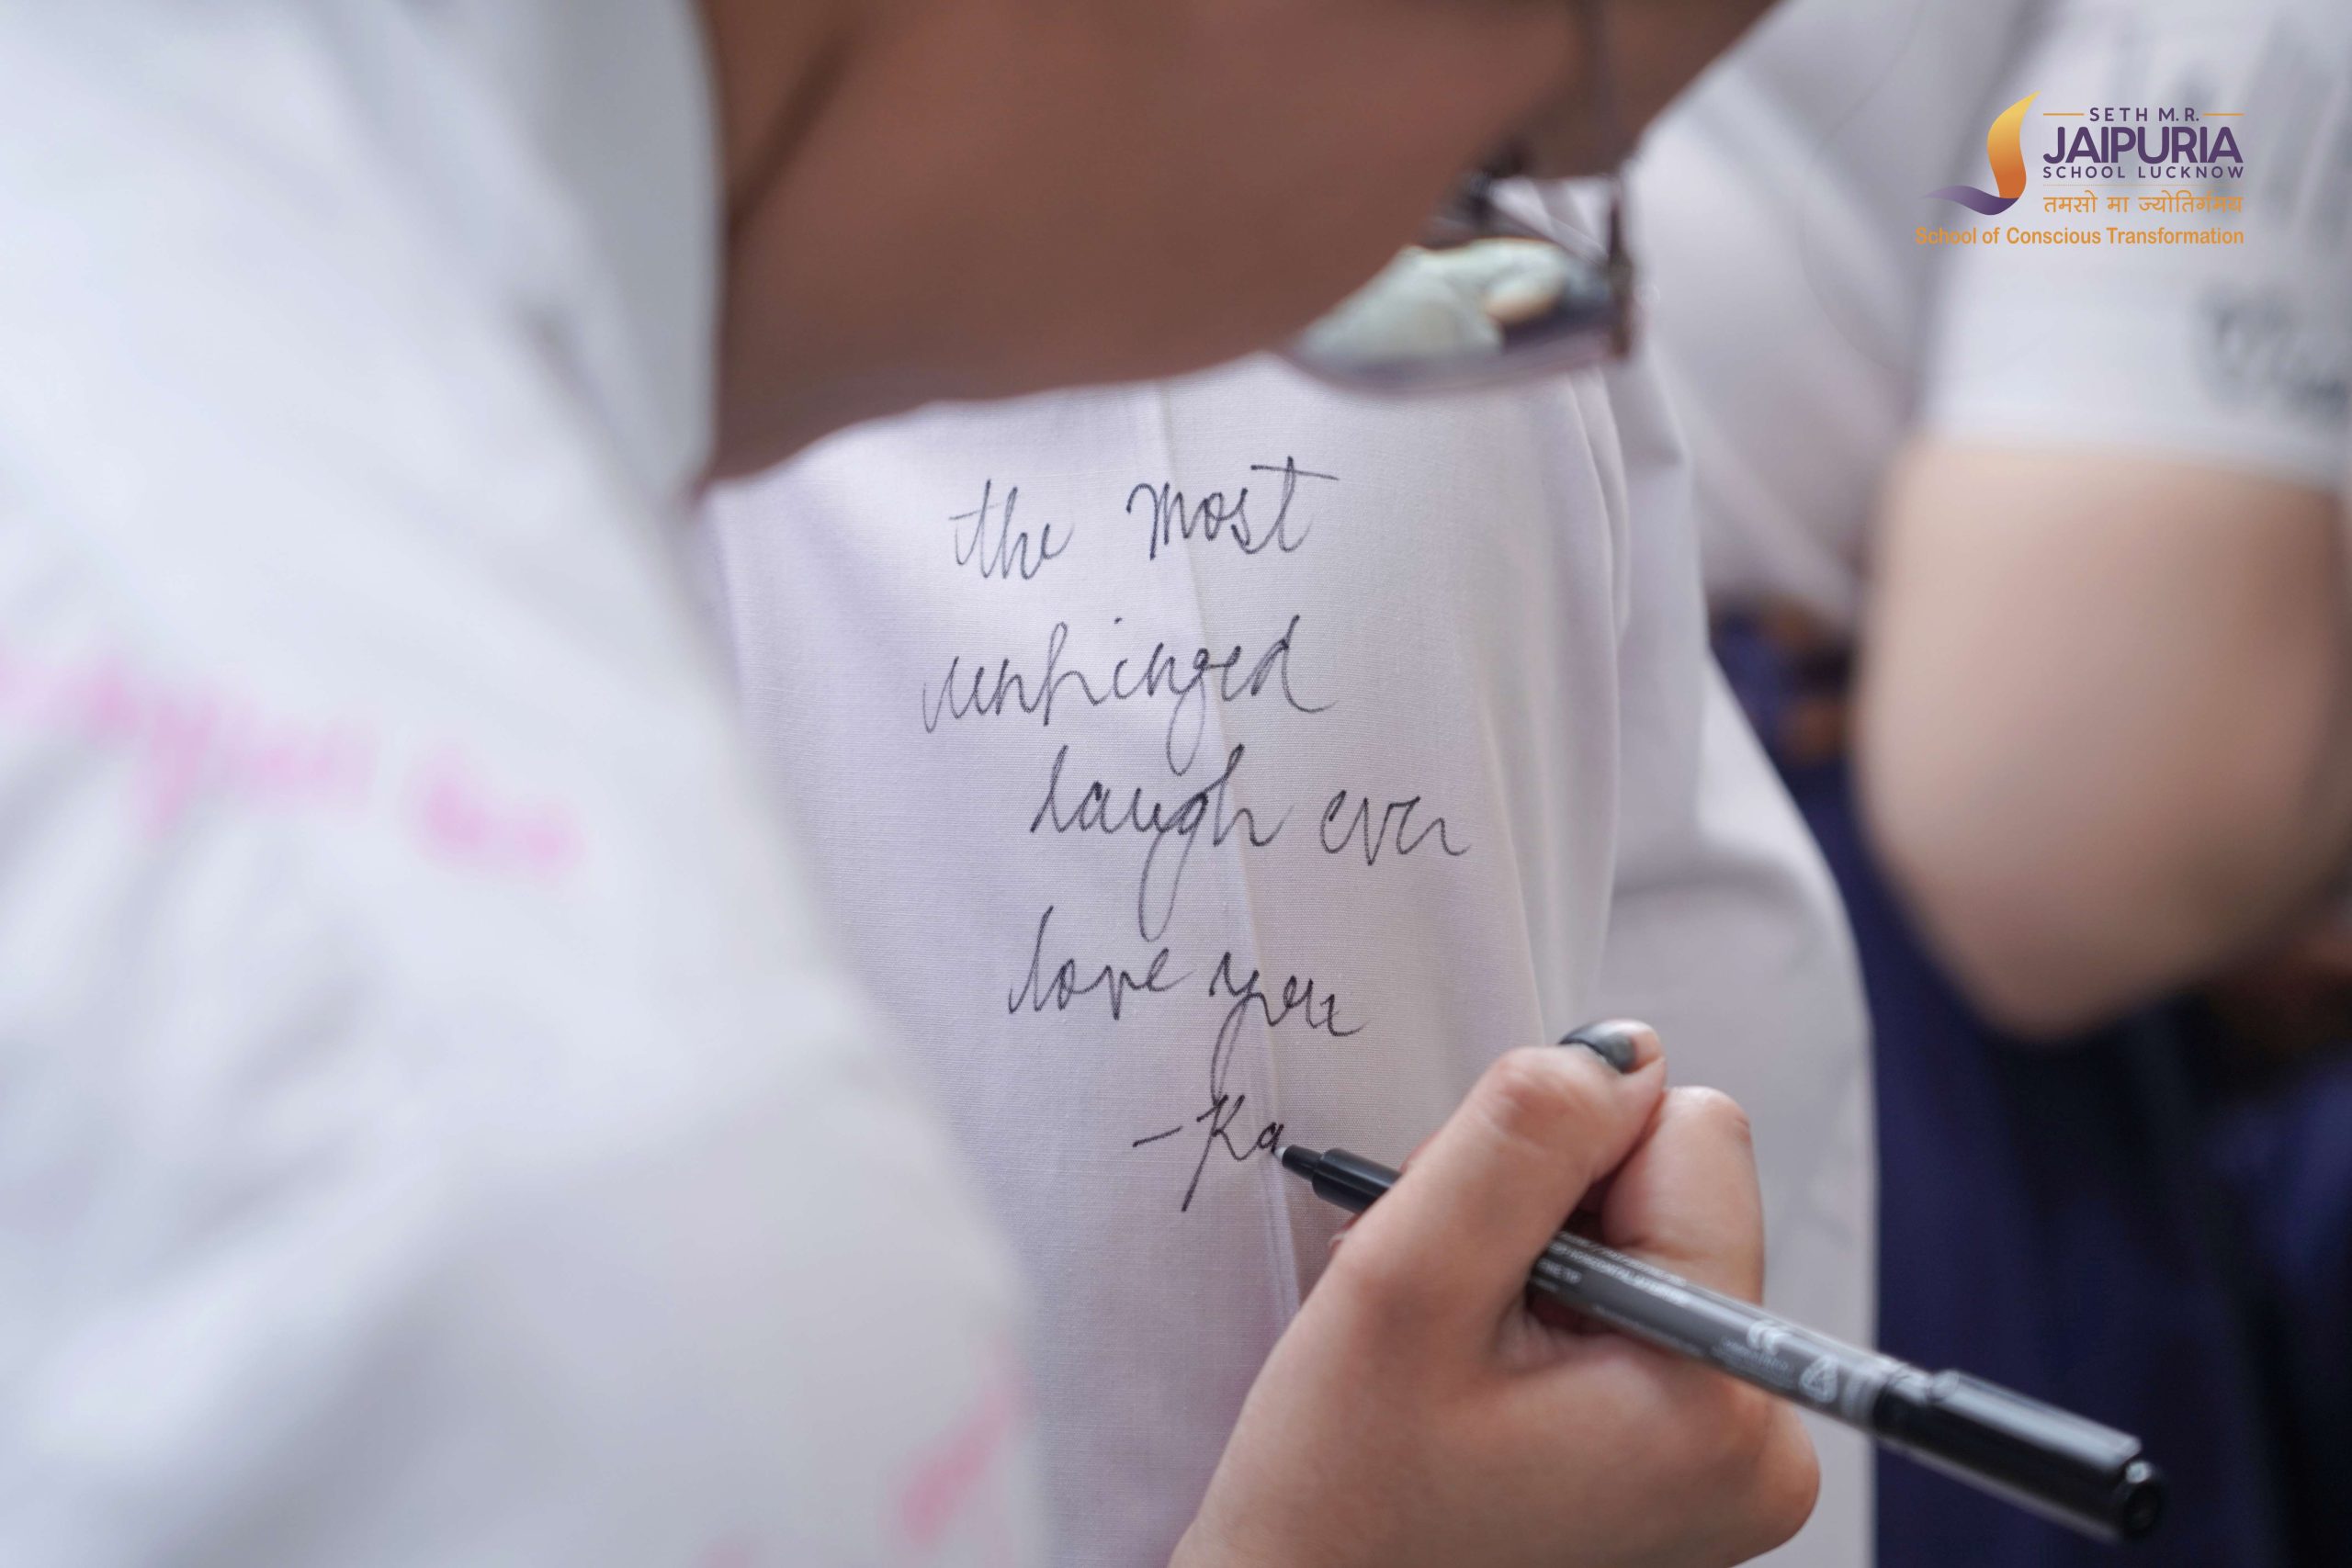 SETH M.R.
JAIPURIA
SCHOOL LUCKNOW
तमसो मा ज्योतिर्गमय
School of Conscious Transformation
the most
unhinged
laugh ever
love you
- Ka